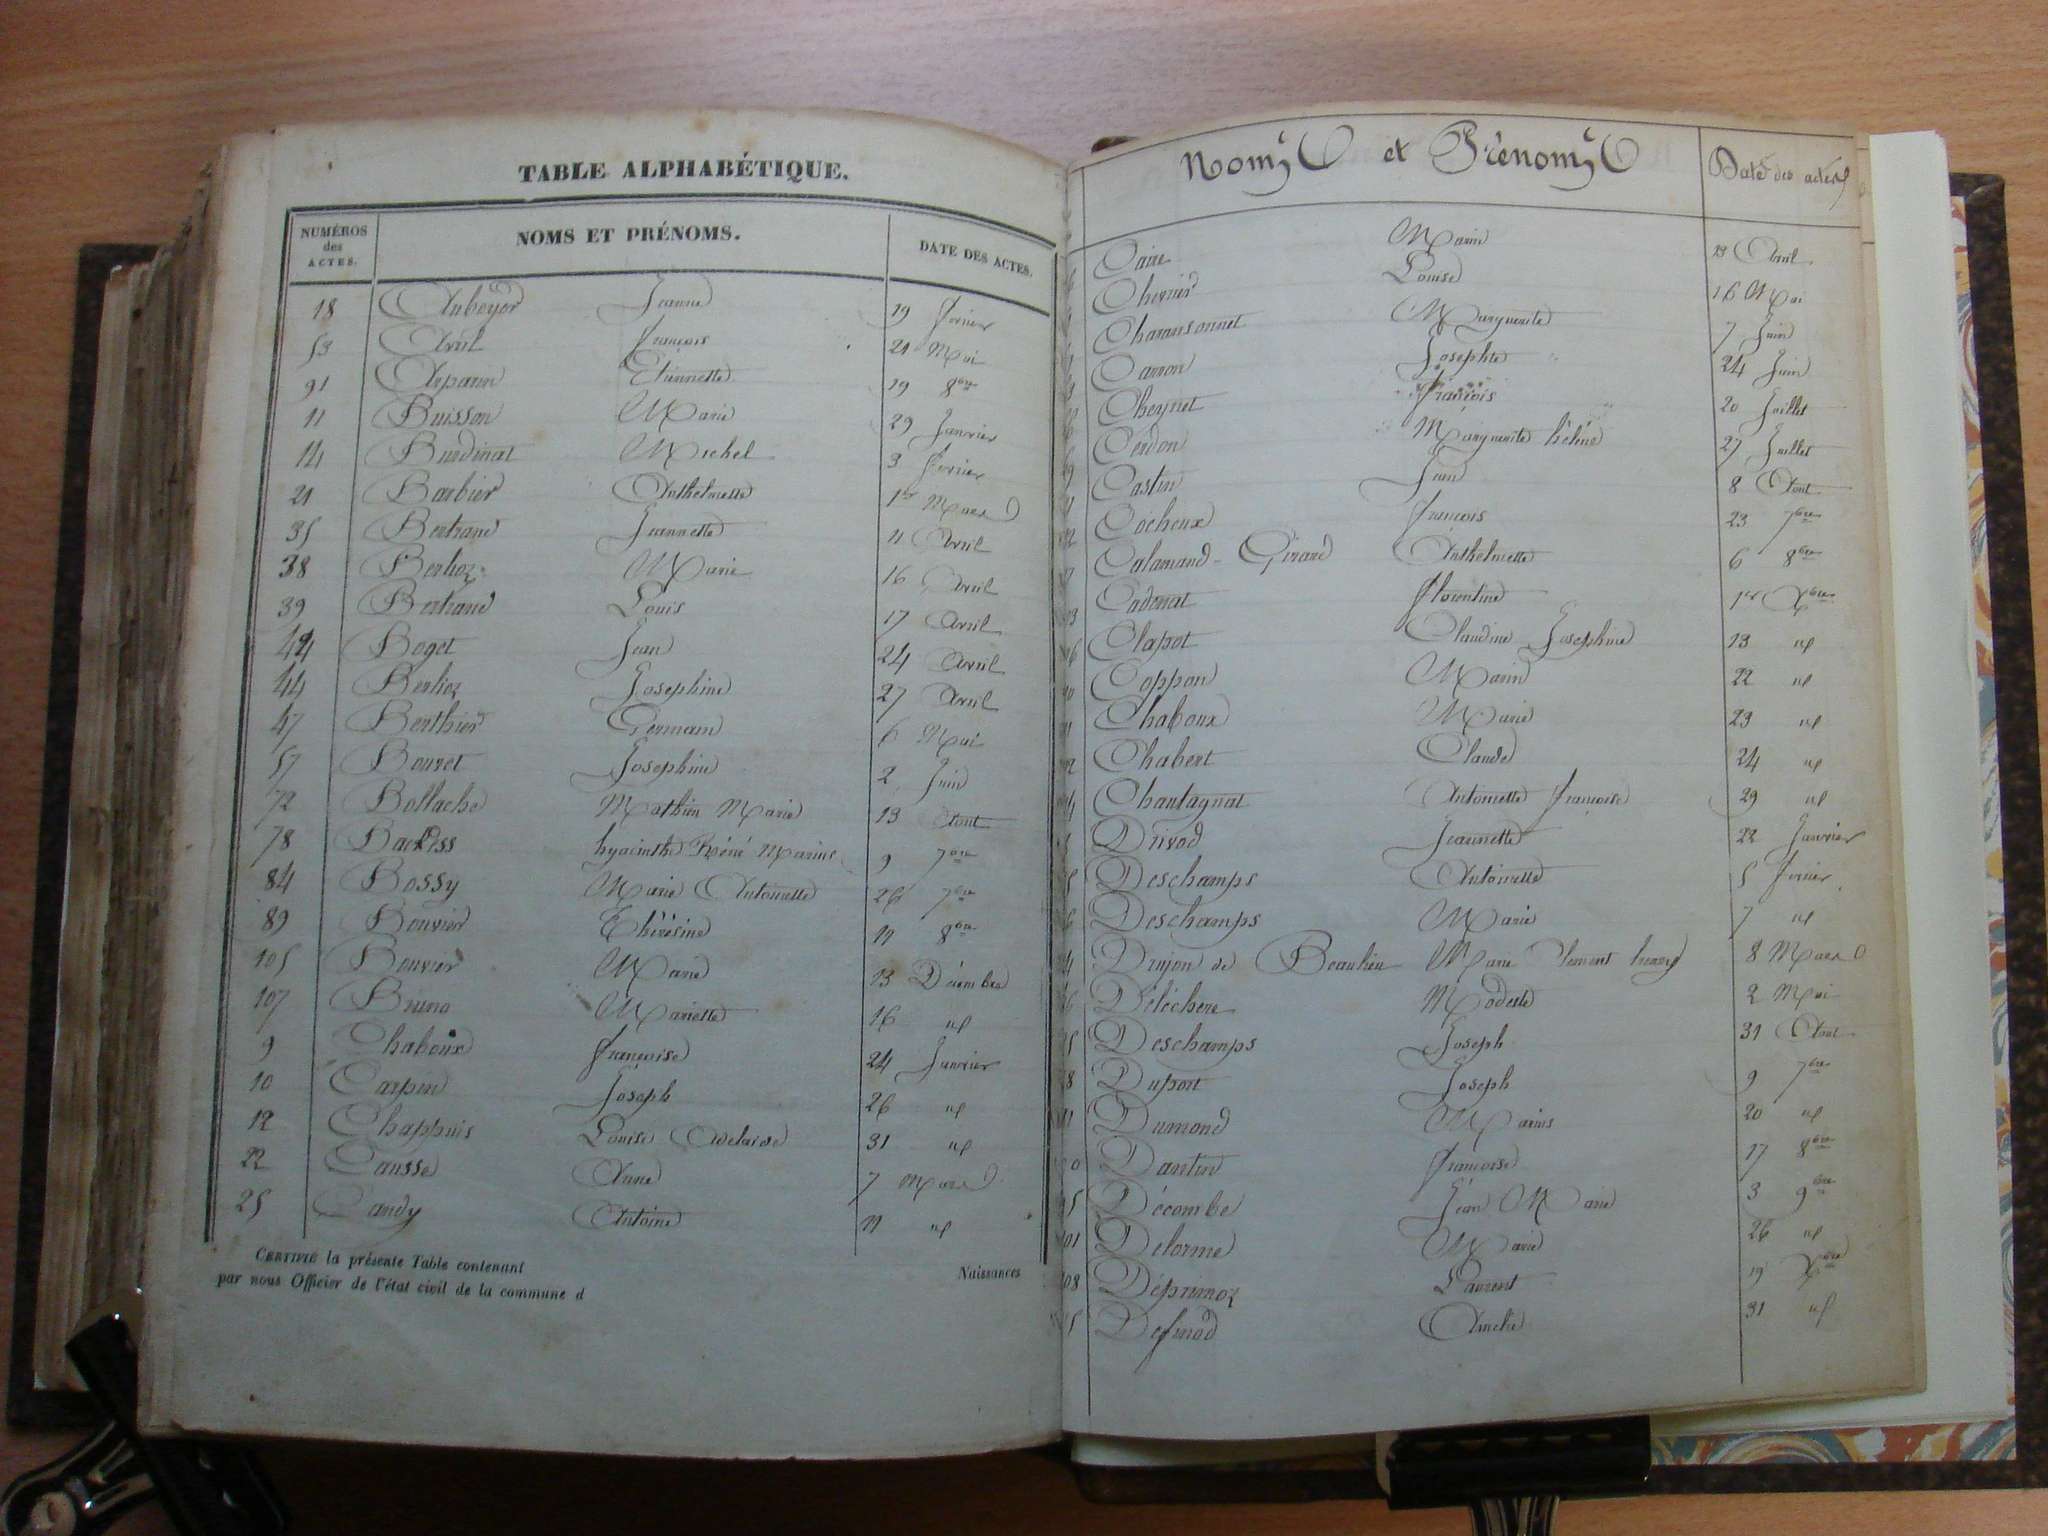 TABLE ALPHABÉTIQUE.
NUMÉROS des ACTES. NOMS ET PRÉNOMS. DATE DES ACTES.
18 Auboyer Jeanne 19 fevrier
53 Avril françois 21 Mai
91 Arparin Etiennette 19 8bre
11 Buisson Marie 29 Janvier
14 Burdinat Michel 3 fevrier
21 Barbier Anthelmette 1er Mars
35 Bertrand Jeannette 11 Avril
38 Berlioz Marie 16 Avril
39 Bertrand Louis 17 Avril
42 Boget Jean 24 Avril
44 Berlioz Josephine 27 Avril
47 Berthier Germain 6 Mai
57 Bouvet Josephine 2 Juin
72 Bollache Mathieu Marie 13 Aout
78 hyacinthe Réné Marius 9 7bre
84 Bossy Marie Antoinette 26 7bre
89 Bouvier Thérésine 11 8bre
105 Bouvier Marie 13 Décembre
107 Bruno Mariette 16 id
9 Chaboux françoise 24 Janvier
10 Carpin Joseph 26 id
12 Chappuis Louise Adelaïde 31 id
22 Causse Anne 7 Mars
25 Candy Antoine 11 id
CERTIFIÉ la présente Table contenant Naissances
par nous Officier de l'état civil de la commune d
Noms et Prénoms Date des actes
Caire Marin 13 Avril
Chevrier Louise 16 Mai
Charansonnet Marguerite 7 Juin
Carron Josephte 24 Juin
Cheynet françois 20 Juillet
Cerdon Marguerite hélène 27 Juillet
Castin Jean 8 Aout
Cocheux françois 23 7bre
Calamand-Girard Anthelmette 6 8bre
Cadenat florentine 1er Xbre
Clapot Claudine Josephine 13 id
Coppon Marin 22 id
Chaboux Marie 23 id
Chabert Claude 24 id
Chautagnat Antoinette françoise 29 id
Drivod Jeannette 22 Janvier
Deschamps Antoinette 5 fevrier
Deschamps Marie 7 id
Drujon de Beaulieu Marie Clement henry 8 Mars
Déléchere Modeste 2 Mai
Deschamps Joseph 31 Aout
Dupont Joseph 9 7bre
Dumond Marius 20 id
Dantin françoise 17 8bre
Décombe Jean Marie 3 9bre
101 Delorme Marie 26 id
108 Déprimoz Laurent 19 Xbre
Amelie 31 id